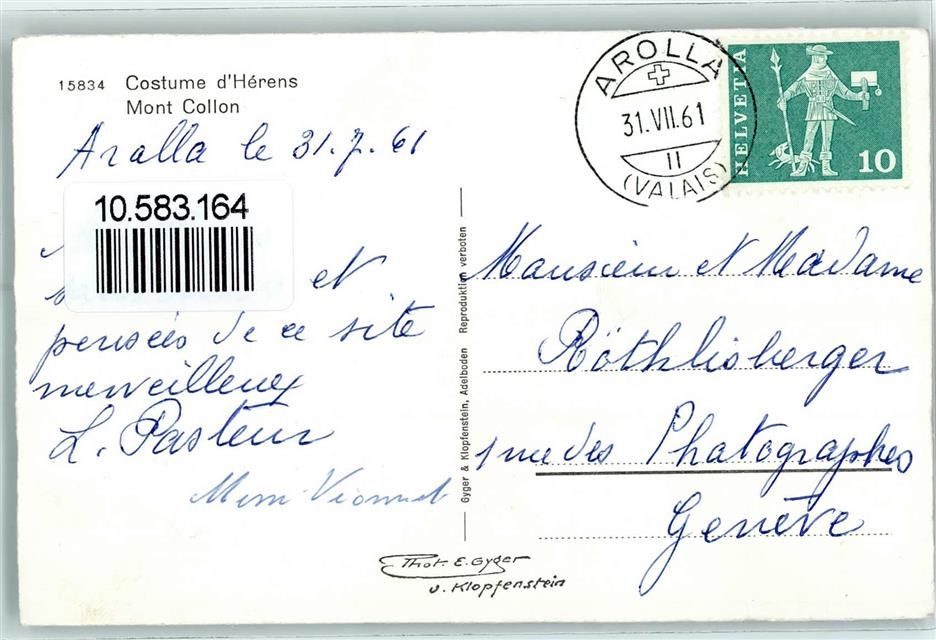 15834 Costume d'Hérens
Mont Collon
Arolla le 31.7.61
10.583.164
et
pensées de ce site
merveilleux
L. Pasteur
AROLLA
31.VII.61
II
(VALAIS)
HELVETIA
10
Monsieur et Madame
Röthlisberger
1 rue des Photographes
Genève
Gyger & Klopfenstein, Adelboden Reproduktion verboten
Phot. E. Gyger
u. Klopfenstein